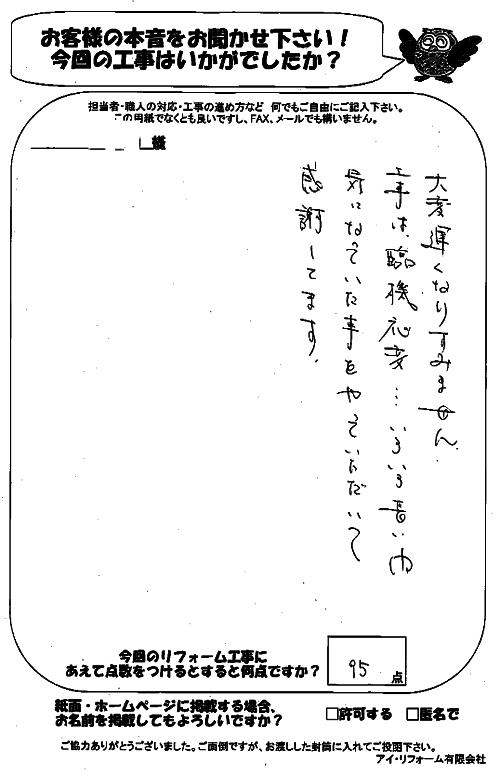 お客様の本音をお聞かせ下さい！
今回の工事はいかがでしたか？
担当者・職人の対応・工事の進め方など 何でもご自由にご記入下さい。
この用紙でなくとも良いですし、FAX、メールでも構いません。
様
大変遅くなりすみません.
工事は、臨機応変…いろいろ長い間
気になっていた事をやっていただいて
感謝してます.
今回のリフォーム工事に
あえて点数をつけるとすると何点ですか？
95 点
紙面・ホームページに掲載する場合、
お名前を掲載してもよろしいですか？
□許可する □匿名で
ご協力ありがとうございました。ご面倒ですが、お渡しした封筒に入れてご投函下さい。
アイ・リフォーム有限会社